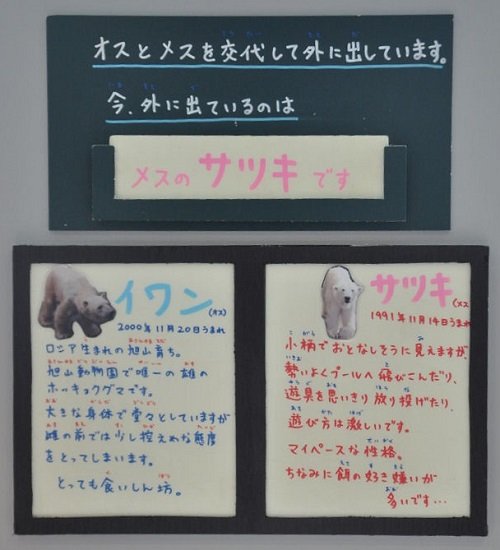 オスとメスを交代して外に出しています。
今、外に出ているのは
メスの サツキ です
イワン(オス)
2000年11月20日うまれ
ロシア生まれの旭山育ち。
旭山動物園で唯一の雄の
ホッキョクグマです。
大きな身体で堂々としていますが
雌の前では少し控えめな態度
をとってしまいます。
とっても食いしん坊。
サツキ(メス
1991年11月14日うまれ
小柄でおとなしそうに見えますが、
勢いよくプールへ飛びこんだり、
遊具を思いきり放り投げたり、
遊び方は激しいです。
マイペースな性格。
ちなみに餌の好き嫌いが
多いです…